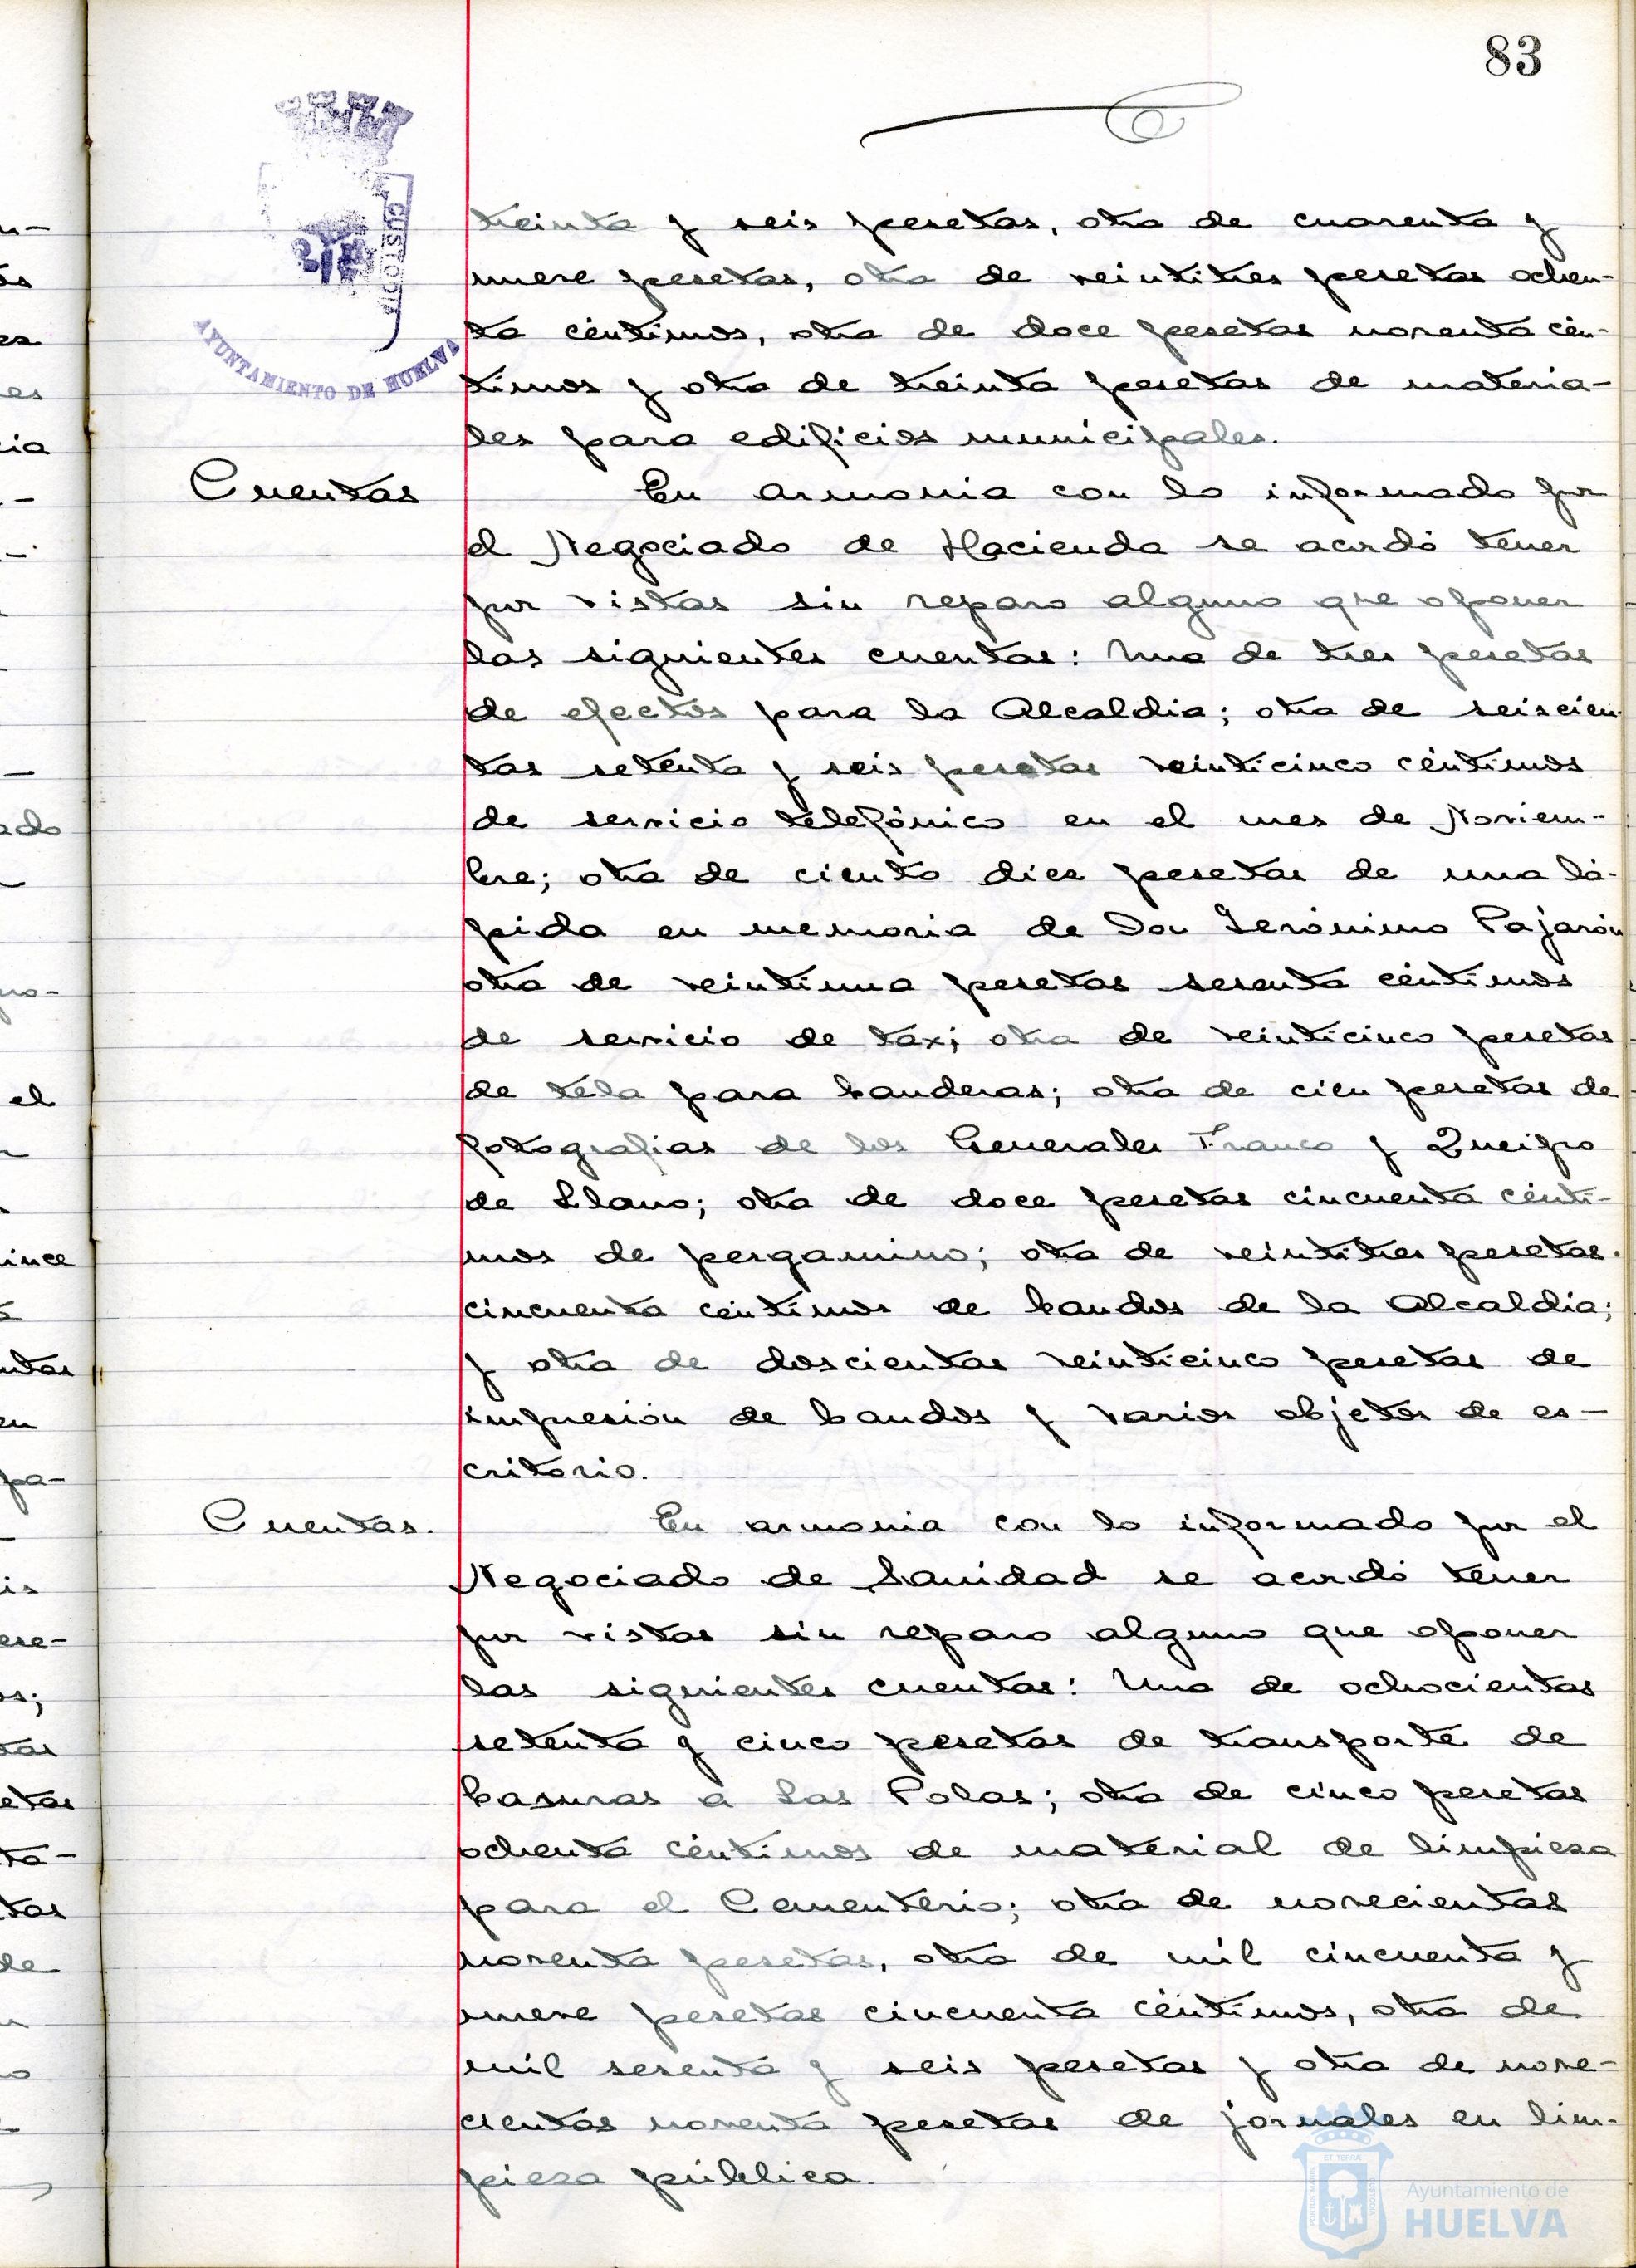 83
CUSTODIA
AYUNTAMIENTO DE HUELVA
treinta y seis pesetas, otra de cuarenta y
nueve pesetas, otra de veintitres pesetas ochen-
ta céntimos, otra de doce pesetas noventa cén-
timos y otra de treinta pesetas de materia-
les para edificios municipales.
Cuentas
En armonia con lo informado por
el Negociado de Hacienda se acordó tener
por vistas sin reparo alguno que oponer
las siguientes cuentas: Una de tres pesetas
de efectos para la Alcaldia; otra de seiscien-
tas setenta y seis pesetas veinticinco céntimos
de servicio telefónico en el mes de Noviem-
bre; otra de ciento diez pesetas de una lá-
pida en memoria de Don Jerónimo Pajarón
otra de veintiuna pesetas sesenta céntimos
de servicio de taxi; otra de veinticinco pesetas
de tela para banderas; otra de cien pesetas de
fotografias de los Generales Franco y Queipo
de Llano; otra de doce pesetas cincuenta cénti-
mos de pergamino; otra de veintitres pesetas
cincuenta céntimos de bandos de la Alcaldia;
y otra de doscientas veinticinco pesetas de
impresión de bandos y varios objetos de es-
critorio.
Cuentas.
En armonia con lo informado por el
Negociado de Sanidad se acordó tener
por vistas sin reparo alguno que oponer
las siguientes cuentas: Una de ochocientas
setenta y cinco pesetas de transporte de
basuras a Las Polas; otra de cinco pesetas
ochenta céntimos de material de limpieza
para el Cementerio; otra de novecientas
noventa pesetas, otra de mil cincuenta y
nueve pesetas cincuenta céntimos, otra de
mil sesenta y seis pesetas y otra de nove-
cientas noventa pesetas de jornales en lim-
pieza pública.
Ayuntamiento de
HUELVA